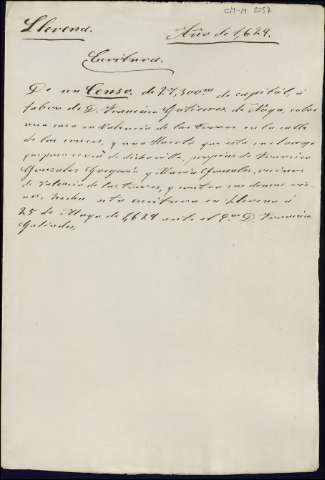 CM-M 2257
Llerena. Año de 1,629.
Escritura.
De un Censo, de 27,300 ms de capital, á
favor de D. Francisco Gutierrez de Moya, sobre
una casa en Valencia de las torres en la calle
de las
y una Huerta que esta en luengo
propias de Francisco
Gonzales y Maria Gonzales, vecinos
de Valencia de las torres, y contra sus demas
hecha esta escritura en Llerena á
25 de Mayo de 1629 ante el D. Francisco